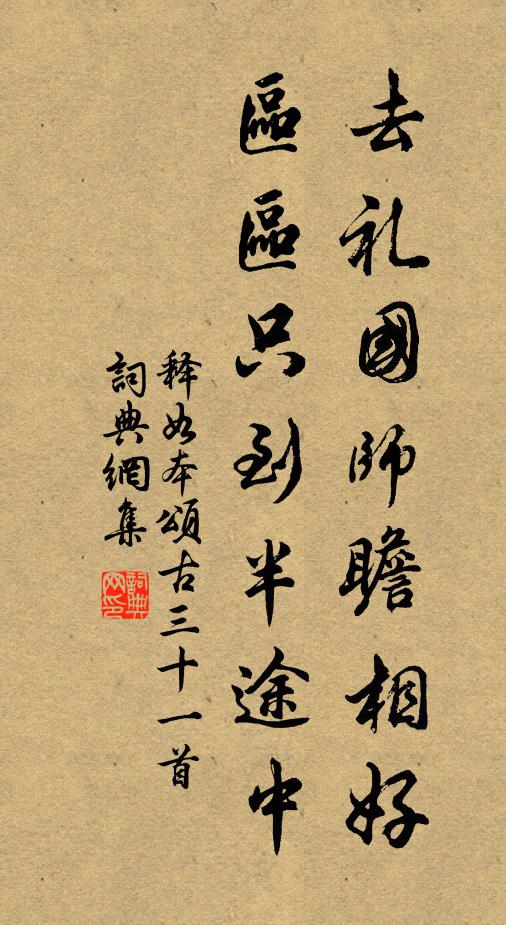 去礼國師瞻相好
區區只到半途中
释如本頌古三十一首
詞典網集
詞典網印